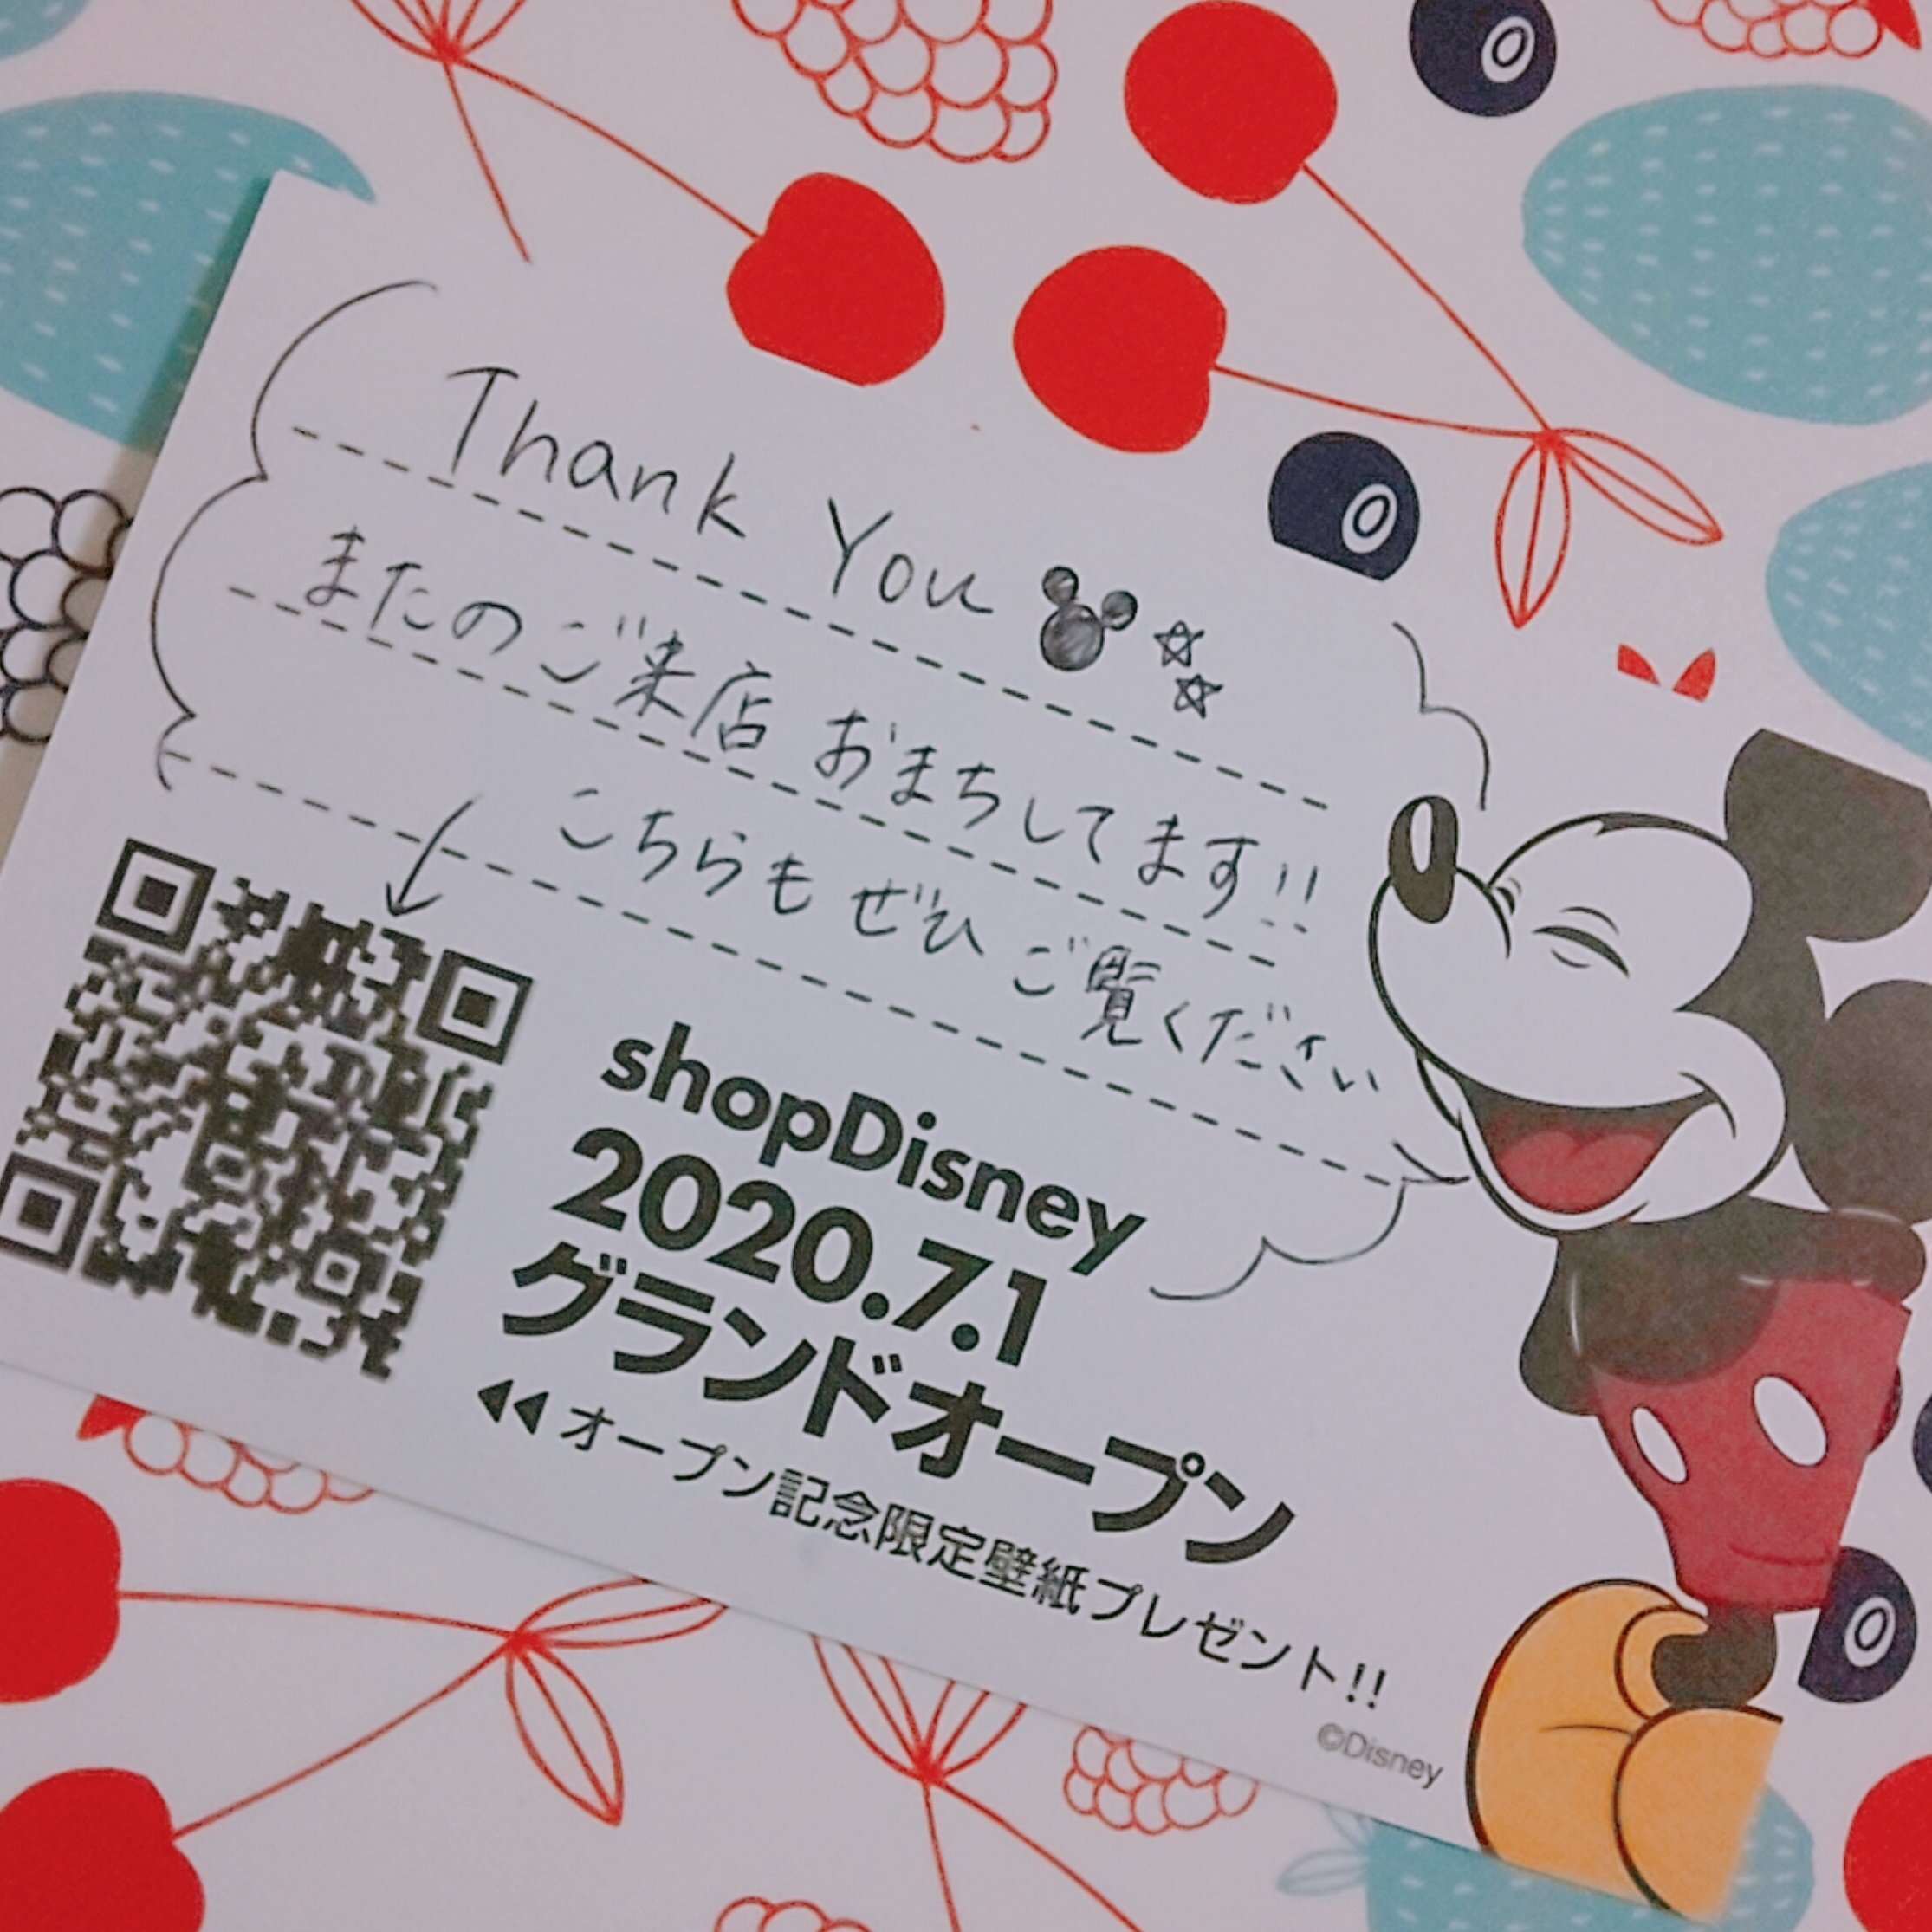 Thank You
またのご来店 おまちしてます!!
こちらも ぜひ ご覧ください
shopDisney
2020.7.1
グランドオープン
◀◀オープン記念限定壁紙プレゼント!!
©Disney